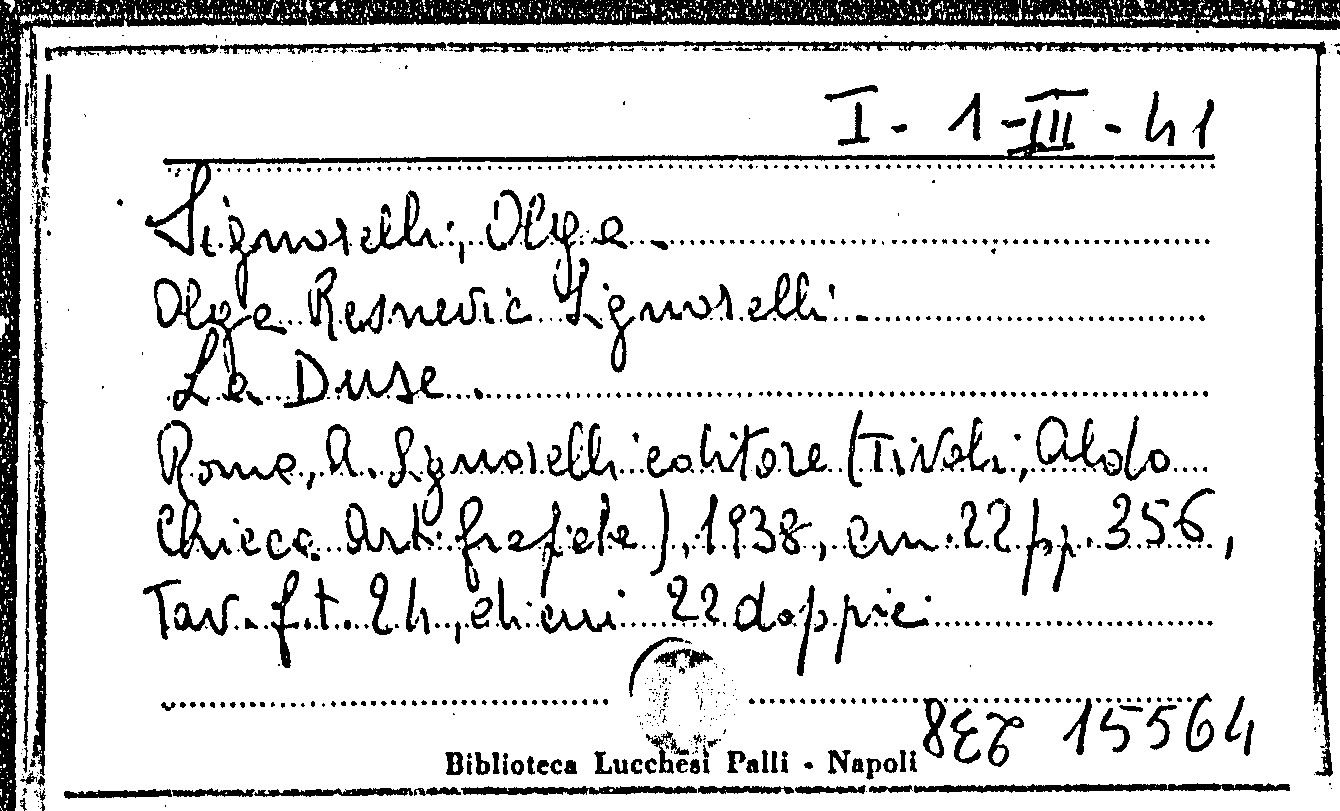 I - 1 - III - 41
Signorelli, Olga.
Olga Resnevic Signorelli.
La Duse.
Roma, A. Signorelli editore (Tivoli, Aldo
Chicca Art. grafiche), 1938, cm. 22 pp. 356,
Tav. f. t. 24, di cui 22 doppie
15564
Biblioteca Lucchesi Palli - Napoli